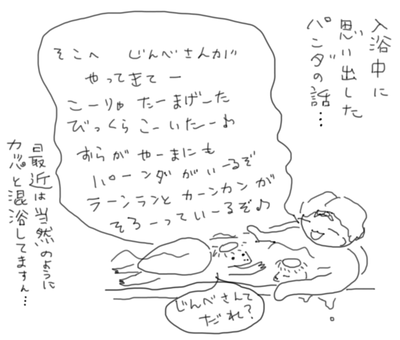 入浴中に
思い出した
パンダの話…
そこへ じんべさんが
やってきてー
こーりゃ たーまげーた
びっくら こーいたーわ
おらが やーまにも
パーンダが いーるぞ
ラーンランと カーンカンが
そろーって いーるぞ♪
じんべさんて
だれ？
最近は当然のように
カパと混浴してますん…